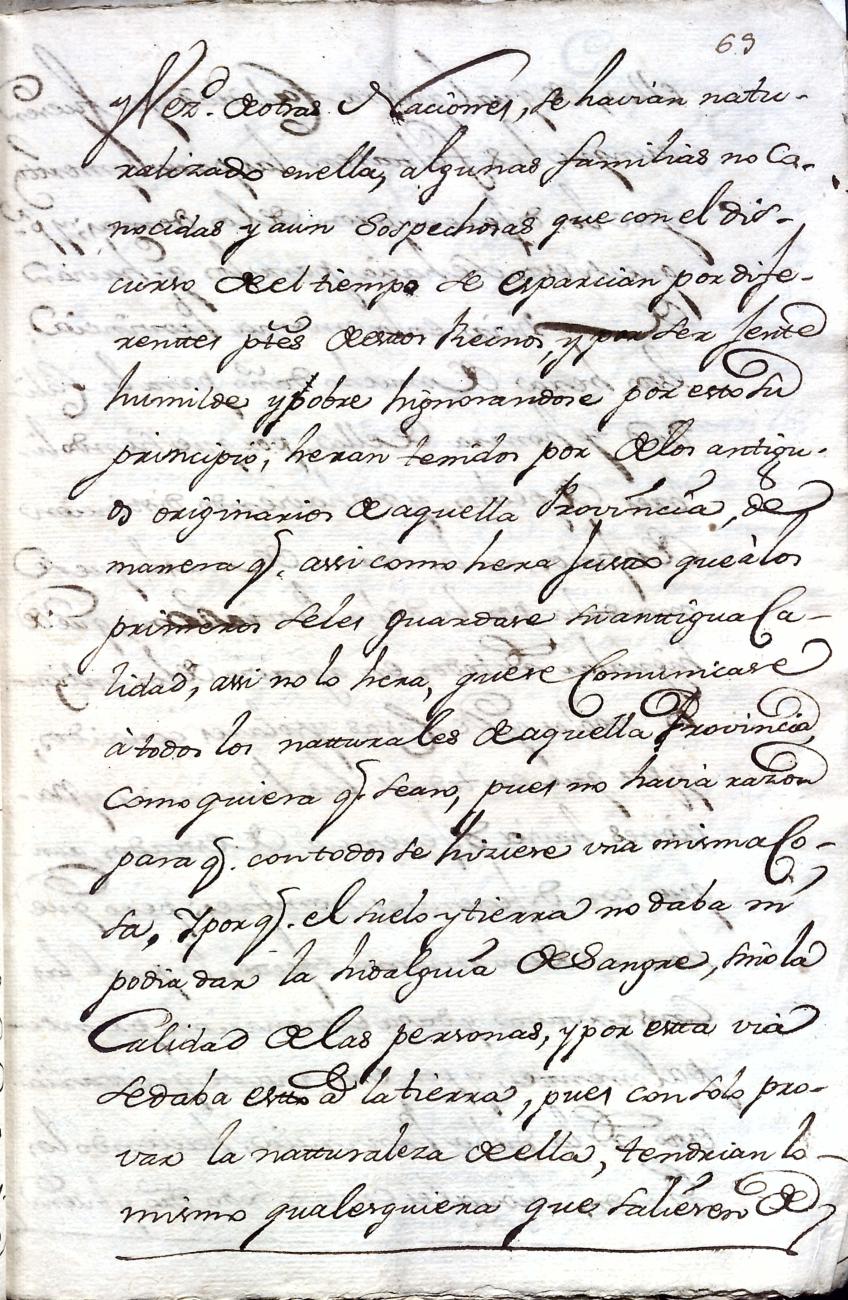 63
y Vezº. de otras Naciones, se havian natu-
ralizado en ella, algunas familias no Ca-
nocidas y aun Sospechosas que con el dis-
curso de el tiempo se esparcian por dife-
renttes ptes de estos Reinos, y por ser Jente
humilde y pobre hignorandose por esto su
principio, heran tenidos por de los antigu-
os originarios de aquella Provincia, de
manera q. assi como hera Justto que à los
primeros se les guardase su anttigua Ca-
lidad, assi no lo hera, que se Comunicase
à todos los natturales de aquella Provincia,
como quiera q. sean, pues no havia razon
para q. con todos se hiziese una misma Co-
sa, Y porq. el suelo y tierra no daba ni
podia dar la hidalguia de Sangre, sino la
Calidad de las personas, y por estta via
se daba estto à la tierra, pues con solo pro-
var la natturaleza de ella, tendrian lo
mismo qualesquiera que saliesen de